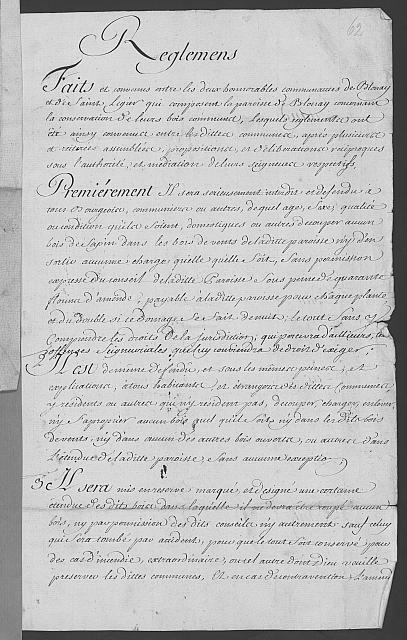 62
Reglemens
Faits et convenus entre les deux honnorables communautés de Blonay
et de Saint Legier qui composent la paroisse de Blonay concernant
la conservation de leurs bois communes, lesquels reglemens ont
été ainsy convenus entre lesdittes communes, après plusieurs
et assemblées, propositions, et deliberations reciproques
sous l'authorité, et mediation de leurs seigneurs respectifs,
Premiérement Il sera serieusement interdit et defendu à
tous Bourgeois, communiers ou autres, de quel age, sexe, qualité
ou condition qu'ils soient, domestiques ou autres de couper aucun
bois de sapin dans les bois de vents de laditte paroisse ny d'en
sortir aucune charge quelle quelle soit, sans permission
expresse du conseil de laditte Paroisse sous peine de quarante
florins d'amende, payable a laditte paroisse pour chaque plante
et du double si ce Domage se fait de nuit, le tout sans cy
Comprendre les droits de la jurisdiction, qui portera d'ailleurs, les
offenses Seigneuriales quelluy conviendra de droit d'exiger;
Il est de même defendu, et sous les mêmes peines, et
explications, à tous habitants et etrangers desdittes Communes
ny residents ou autres qui ny resident pas, de couper, charger, enlever,
ny s'aproprier aucun bois quel quil soit, ny dans les dits bois
de vents, ny dans aucun des autres bois ouverts, ou autres dans
l'etendue de laditte paroisse sans aucune exception,
3 Il sera mis en reserve marqué, et designé une certaine
etendue desdits bois dans laquelle il ne devra etre coupé aucun
bois, ny par permission desdits conseils ny autrement sauf celuy
qui sera tombé par accident, pour que le tout soit conservé pour
des cas d'incendie, extraordinaire, ou tel autre dont dieu veuille
preserver les dittes communes, Et en cas de contravention l'amende